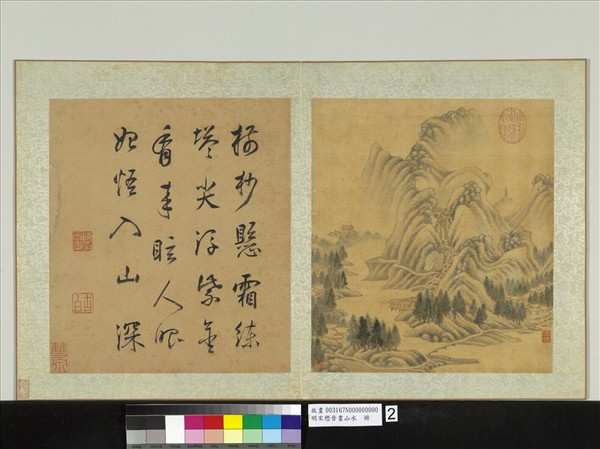 樹杪懸霜練
塔尖浮紫金
看來眩人眼
始悟入山深
故畫 003167N000000000
明宋懋晉畫山水 冊
2